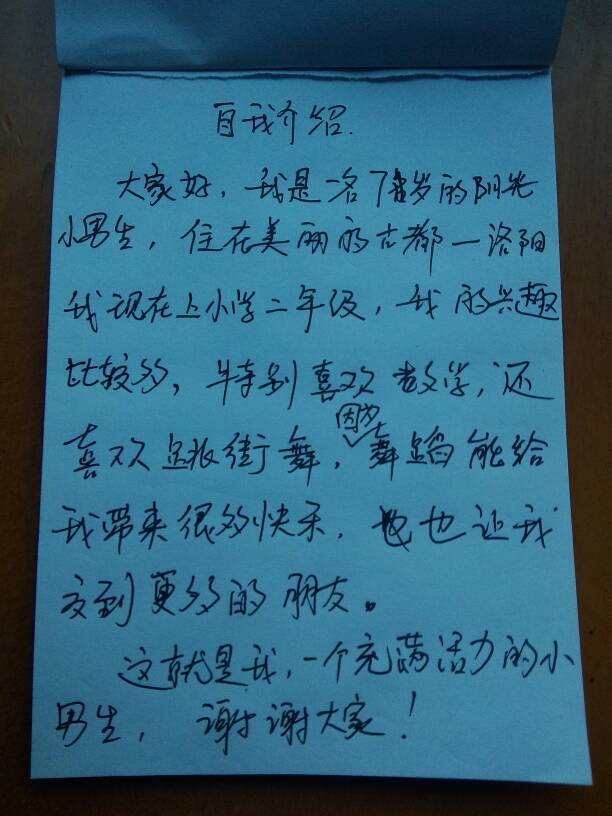 自我介绍
大家好，我是一名7岁的阳光
小男生，住在美丽的古都—洛阳
我现在上小学二年级，我的兴趣
比较多，特别喜欢数学，还
喜欢跳街舞，因为舞蹈能给
我带来很多快乐，也让我
交到更多的朋友。
这就是我，一个充满活力的小
男生，谢谢大家！